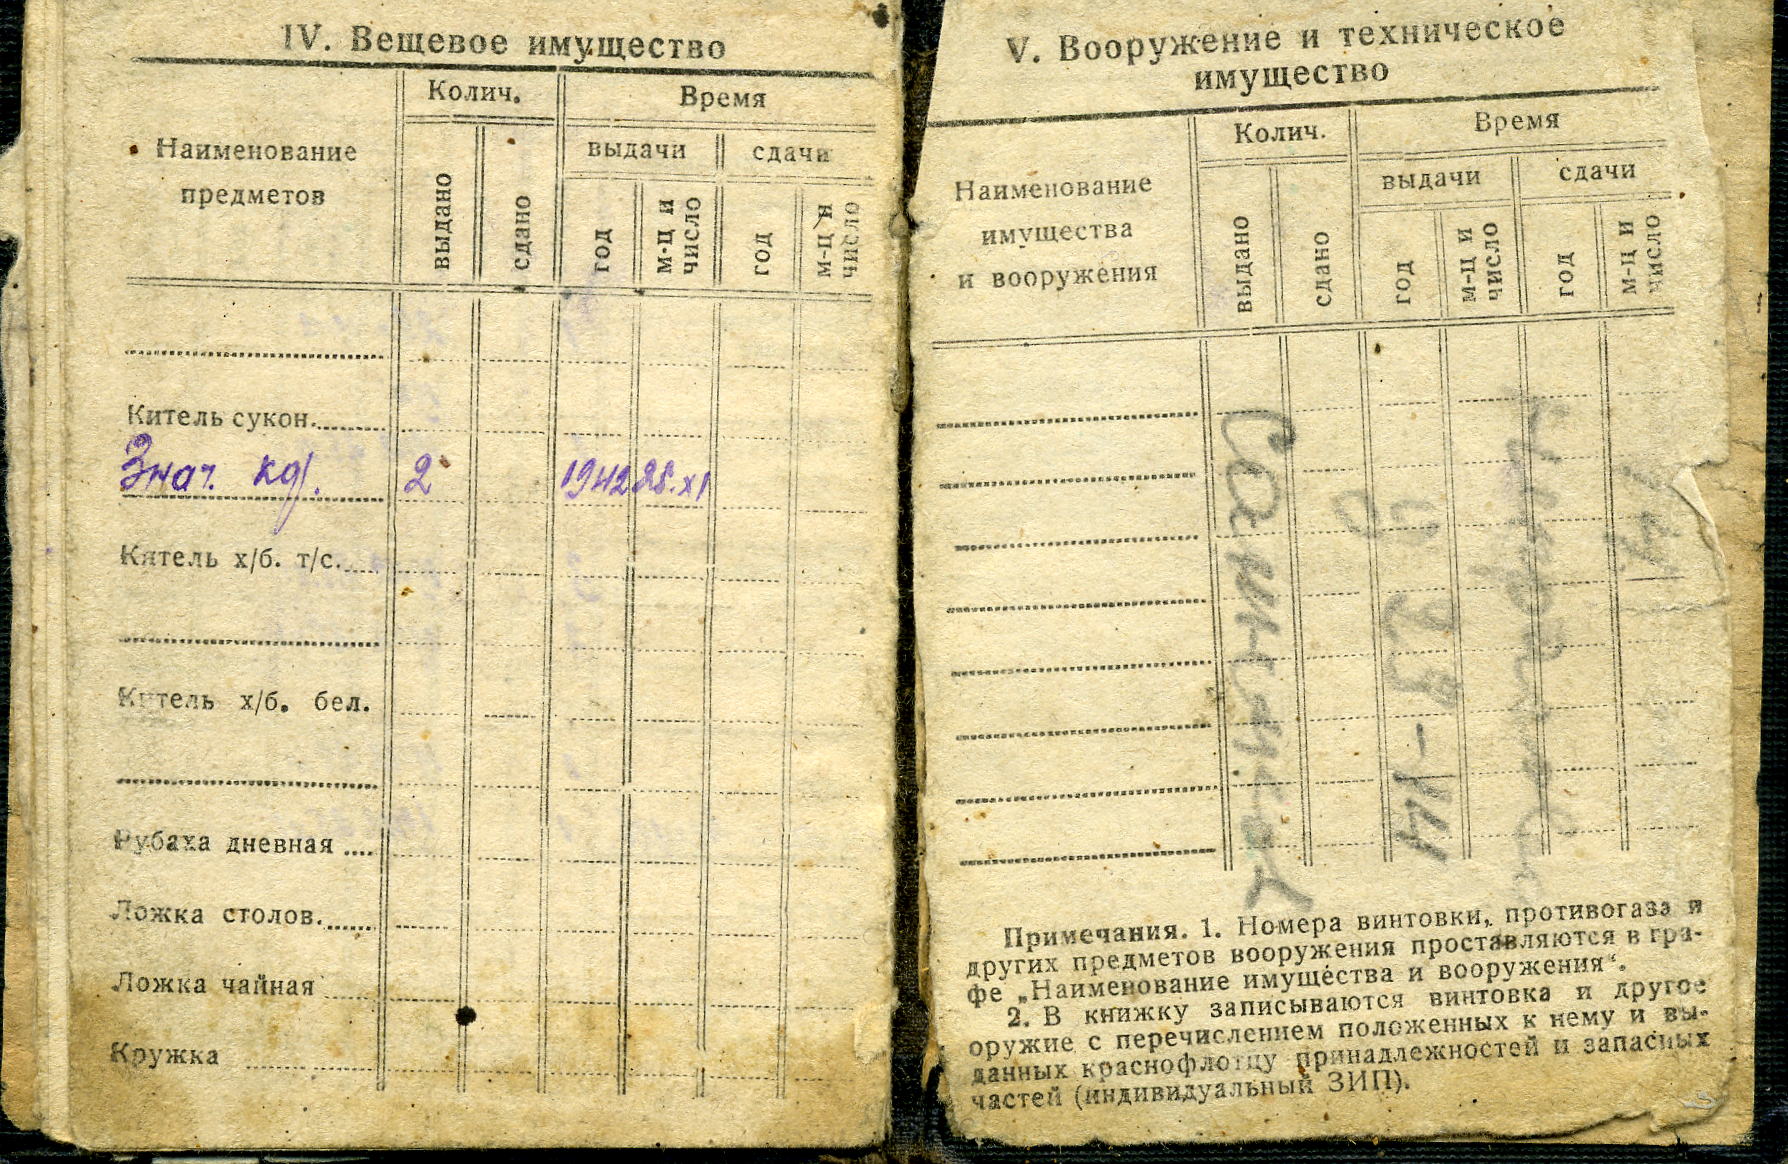 IV. Вещевое имущество
Наименование
предметов
Колич.
Время
выдачи
сдачи
выдано
сдано
год
м-ц и
число
год
м-ц и
число
Китель сукон.
Знач. кр. 2 1942 28.XI
Китель х/б. т/с.
Китель х/б. бел.
Рубаха дневная
Ложка столов.
Ложка чайная
Кружка
V. Вооружение и техническое
имущество
Наименование
имущества
и вооружения
Колич.
Время
выдачи
сдачи
выдано
сдано
год
м-ц и
число
год
м-ц и
число
Примечания. 1. Номера винтовки, противогаза и
других предметов вооружения проставляются в гра-
фе „Наименование имущества и вооружения“.
2. В книжку записываются винтовка и другое
оружие с перечислением положенных к нему и вы-
данных краснофлотцу принадлежностей и запасных
частей (индивидуальный ЗИП).